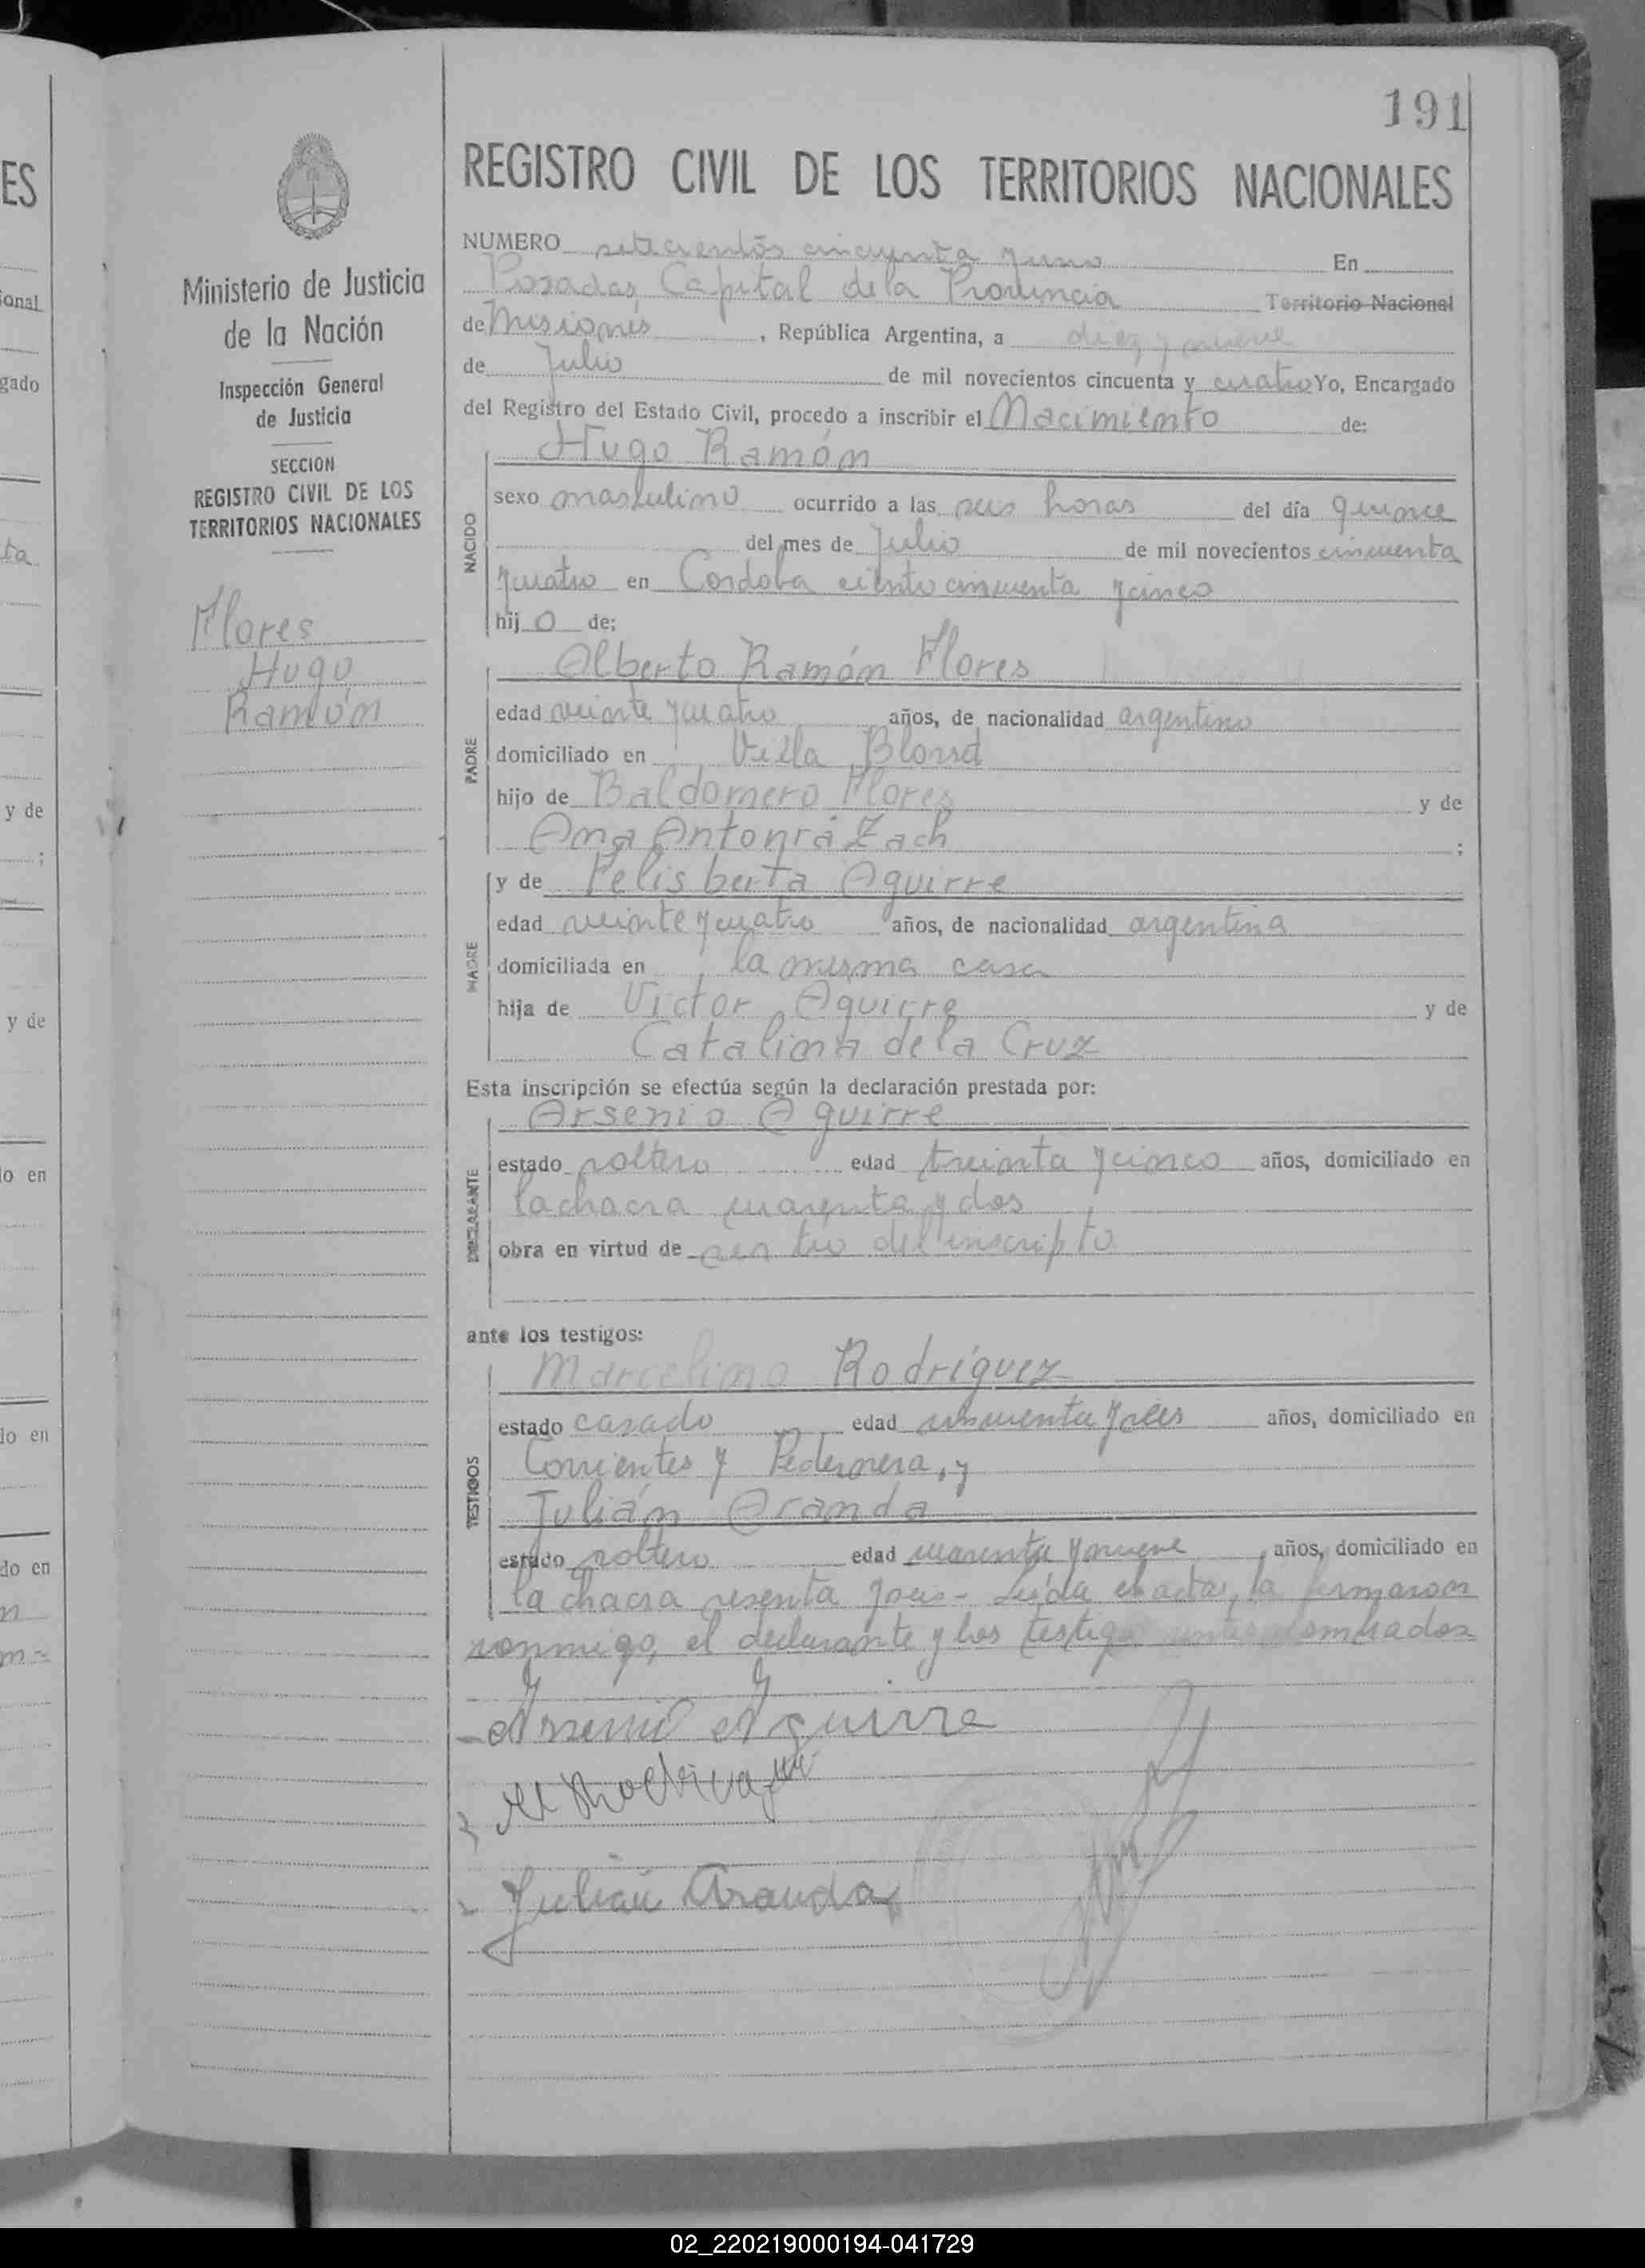 191
REGISTRO CIVIL DE LOS TERRITORIOS NACIONALES
Ministerio de Justicia
de la Nación
Inspección General
de Justicia
SECCION
REGISTRO CIVIL DE LOS
TERRITORIOS NACIONALES
Flores
Hugo
Ramón
NUMERO setecientos cincuenta y uno En
Posadas, Capital de la Provincia Territorio Nacional
de Misiones, República Argentina, a diez y nueve
de Julio de mil novecientos cincuenta y cuatro Yo, Encargado
del Registro del Estado Civil, procedo a inscribir el Nacimiento de:
Hugo Ramón
NACIDO
sexo masculino ocurrido a las seis horas del día quince
del mes de Julio de mil novecientos cincuenta
y cuatro en Cordoba ciento cincuenta y cinco
hij o de:
Alberto Ramón Flores
PADRE
edad veinte y cuatro años, de nacionalidad argentino
domiciliado en Villa
hijo de Baldomero Flores y de
Ana Antonia Zach ;
MADRE
y de Felisberta Aguirre
edad veinte y cuatro años, de nacionalidad argentina
domiciliada en la misma casa
hija de Victor Aguirre y de
Catalina de la Cruz
Esta inscripción se efectúa según la declaración prestada por:
Arsenio Aguirre
DECLARANTE
estado soltero edad treinta y cinco años, domiciliado en
la chacra cuarenta y dos
obra en virtud de ser tio del inscripto
ante los testigos:
Marcelino Rodríguez
TESTIGOS
estado casado edad cincuenta y seis años, domiciliado en
Corrientes y Pedernera, y
Julián Aranda
estado soltero edad cuarenta y nueve años, domiciliado en
la chacra sesenta y seis - Leída el acta, la firmaron
conmigo, el declarante y los testigos antes nombrados
Arsenio Aguirre
M Rodriguez
Julián Aranda
ES
ional
gado
ta
y de
;
y de
lo en
lo en
do en
02_220219000194-041729